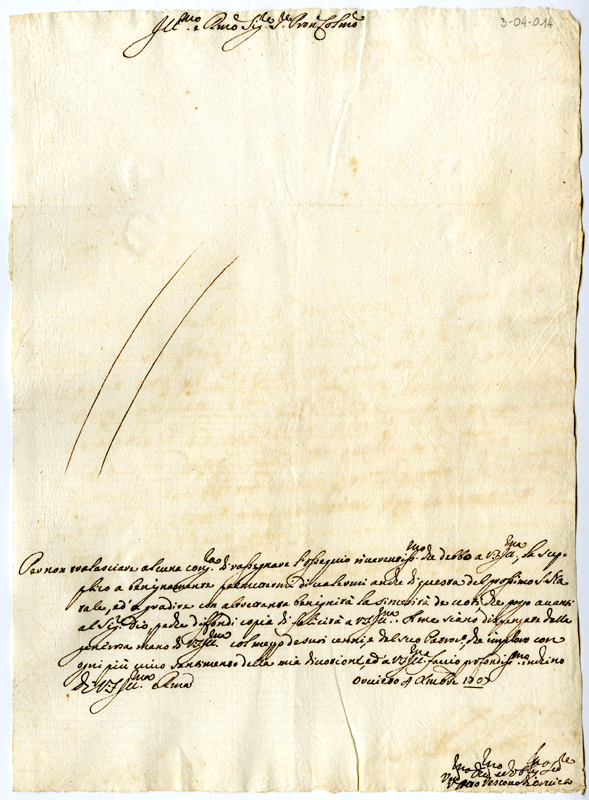 3-04-014
Ill.mo e R.mo Sig.re Sig.re Pron Col.mo
Per non tralasciare alcuna cong.ra di rassegnare l'ossequio riverentiss.mo che debbo a V.S. Ill.ma, la sup-
plico a benignamente permettermi di valermi anche di questa del prossimo Nata
tale, ed a gradire con altrettanta benignità la sincerità de voti, che porgo avanti
al Sig.re Dio, perche difondi copia di felicità a V.S. Ill.ma. A me siano dispensate dalla
generosa mano di V.S. Ill.ma col mezzo de suoi cenni, che imploro con
ogni più vivo sentimento della mia divotione, ed a V.S. Ill.ma faccio profondiss.mo inchino
di V.S. Ill.ma e R.ma Orvieto Xmbre
Vescovo